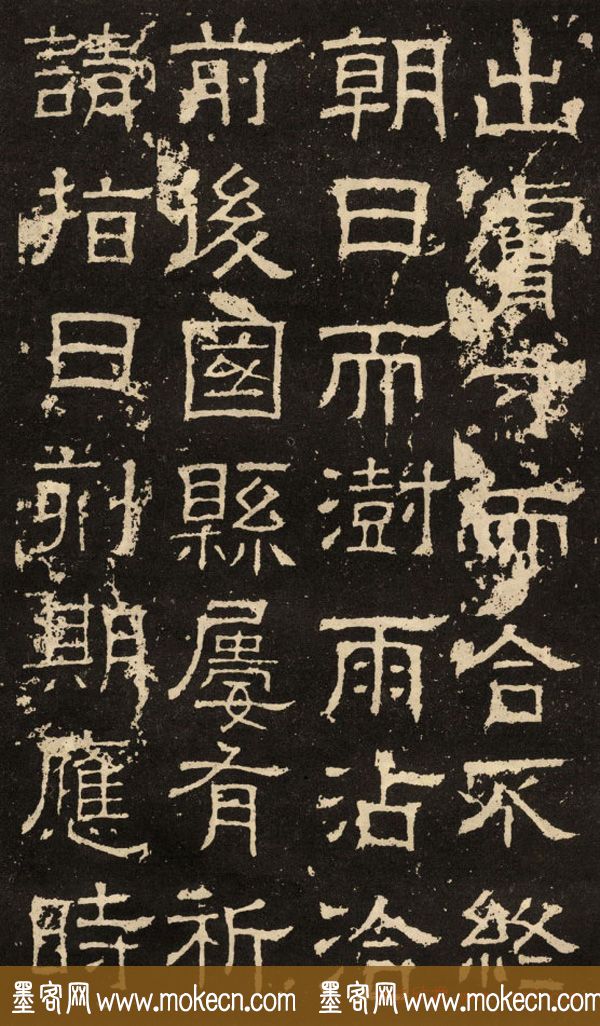 出膚寸而合不終
朝日而澍雨沾洽
前後國縣屢有祈
請指日刻期應時
墨客网 www.mokecn.com 墨客网 www.mokecn.com